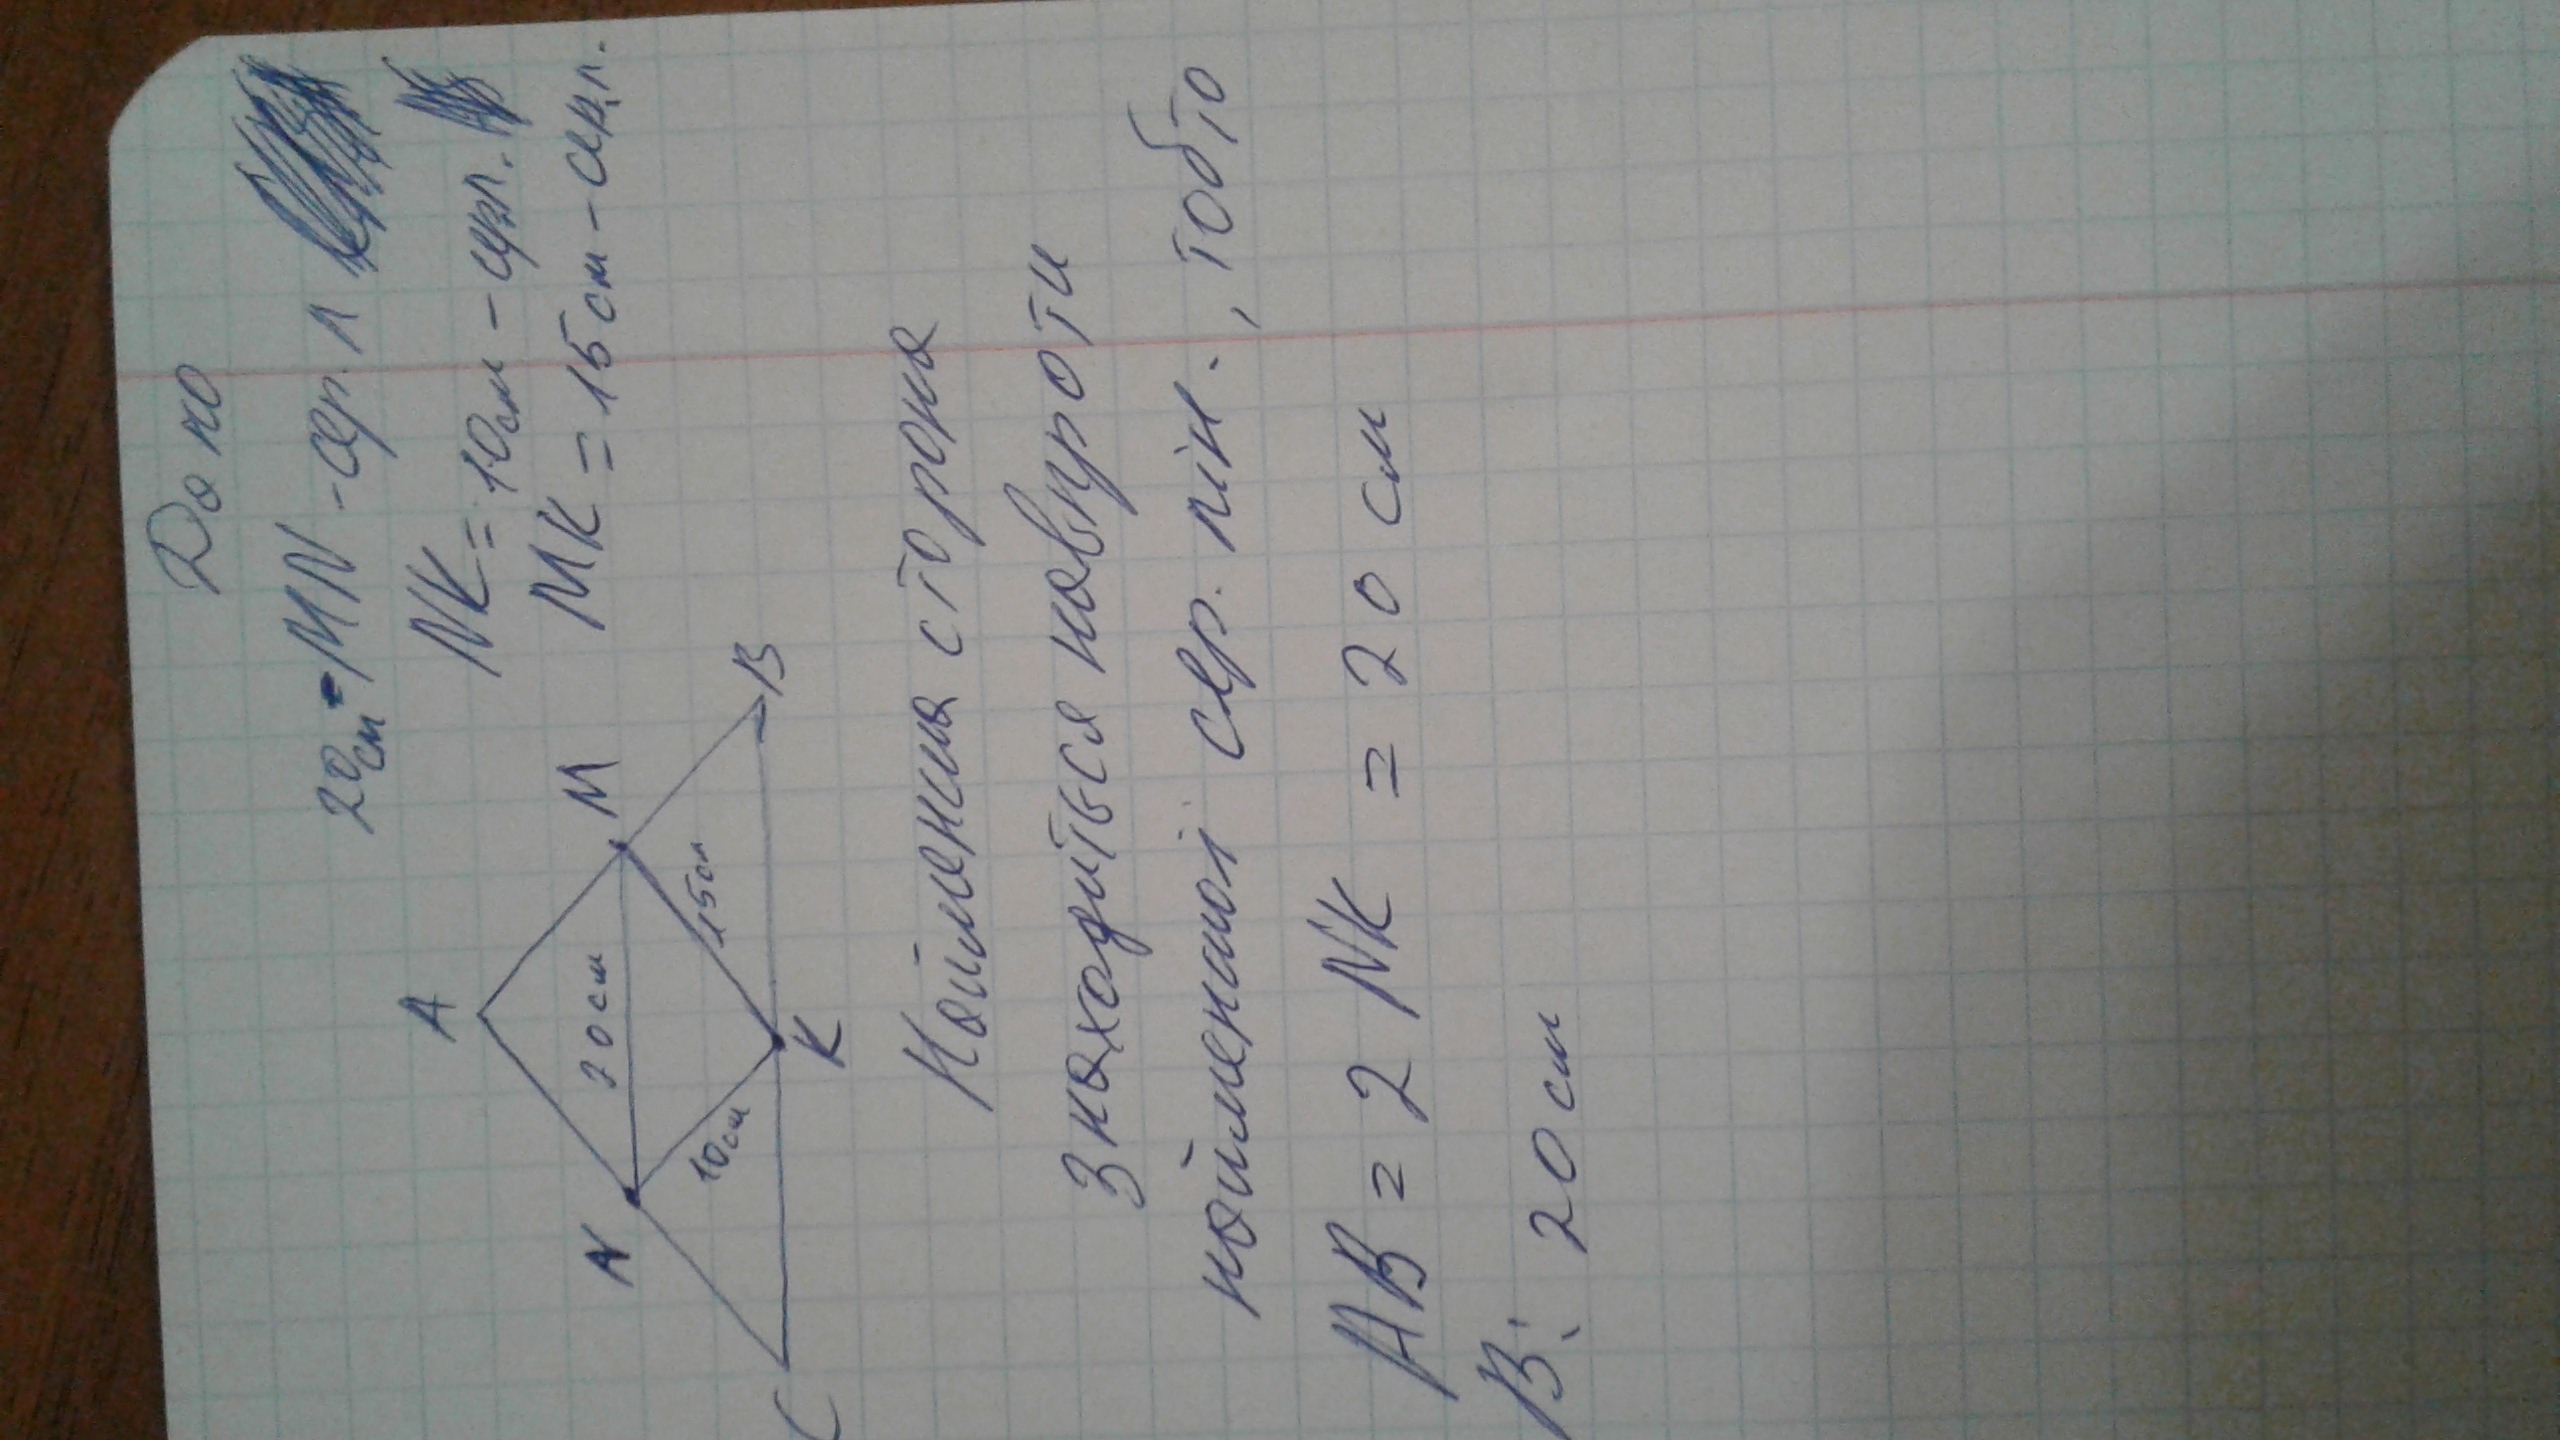 Дано
20см = MN - сер. л
NK = 10см - сер.л.
MK = 15см - сер.л.
A
N
M
20см
10см
15см
C
K
B
Найменша сторона
знаходиться навпроти
найменшої сер. лін., тобто
AB = 2 NK = 20 см
В: 20 см